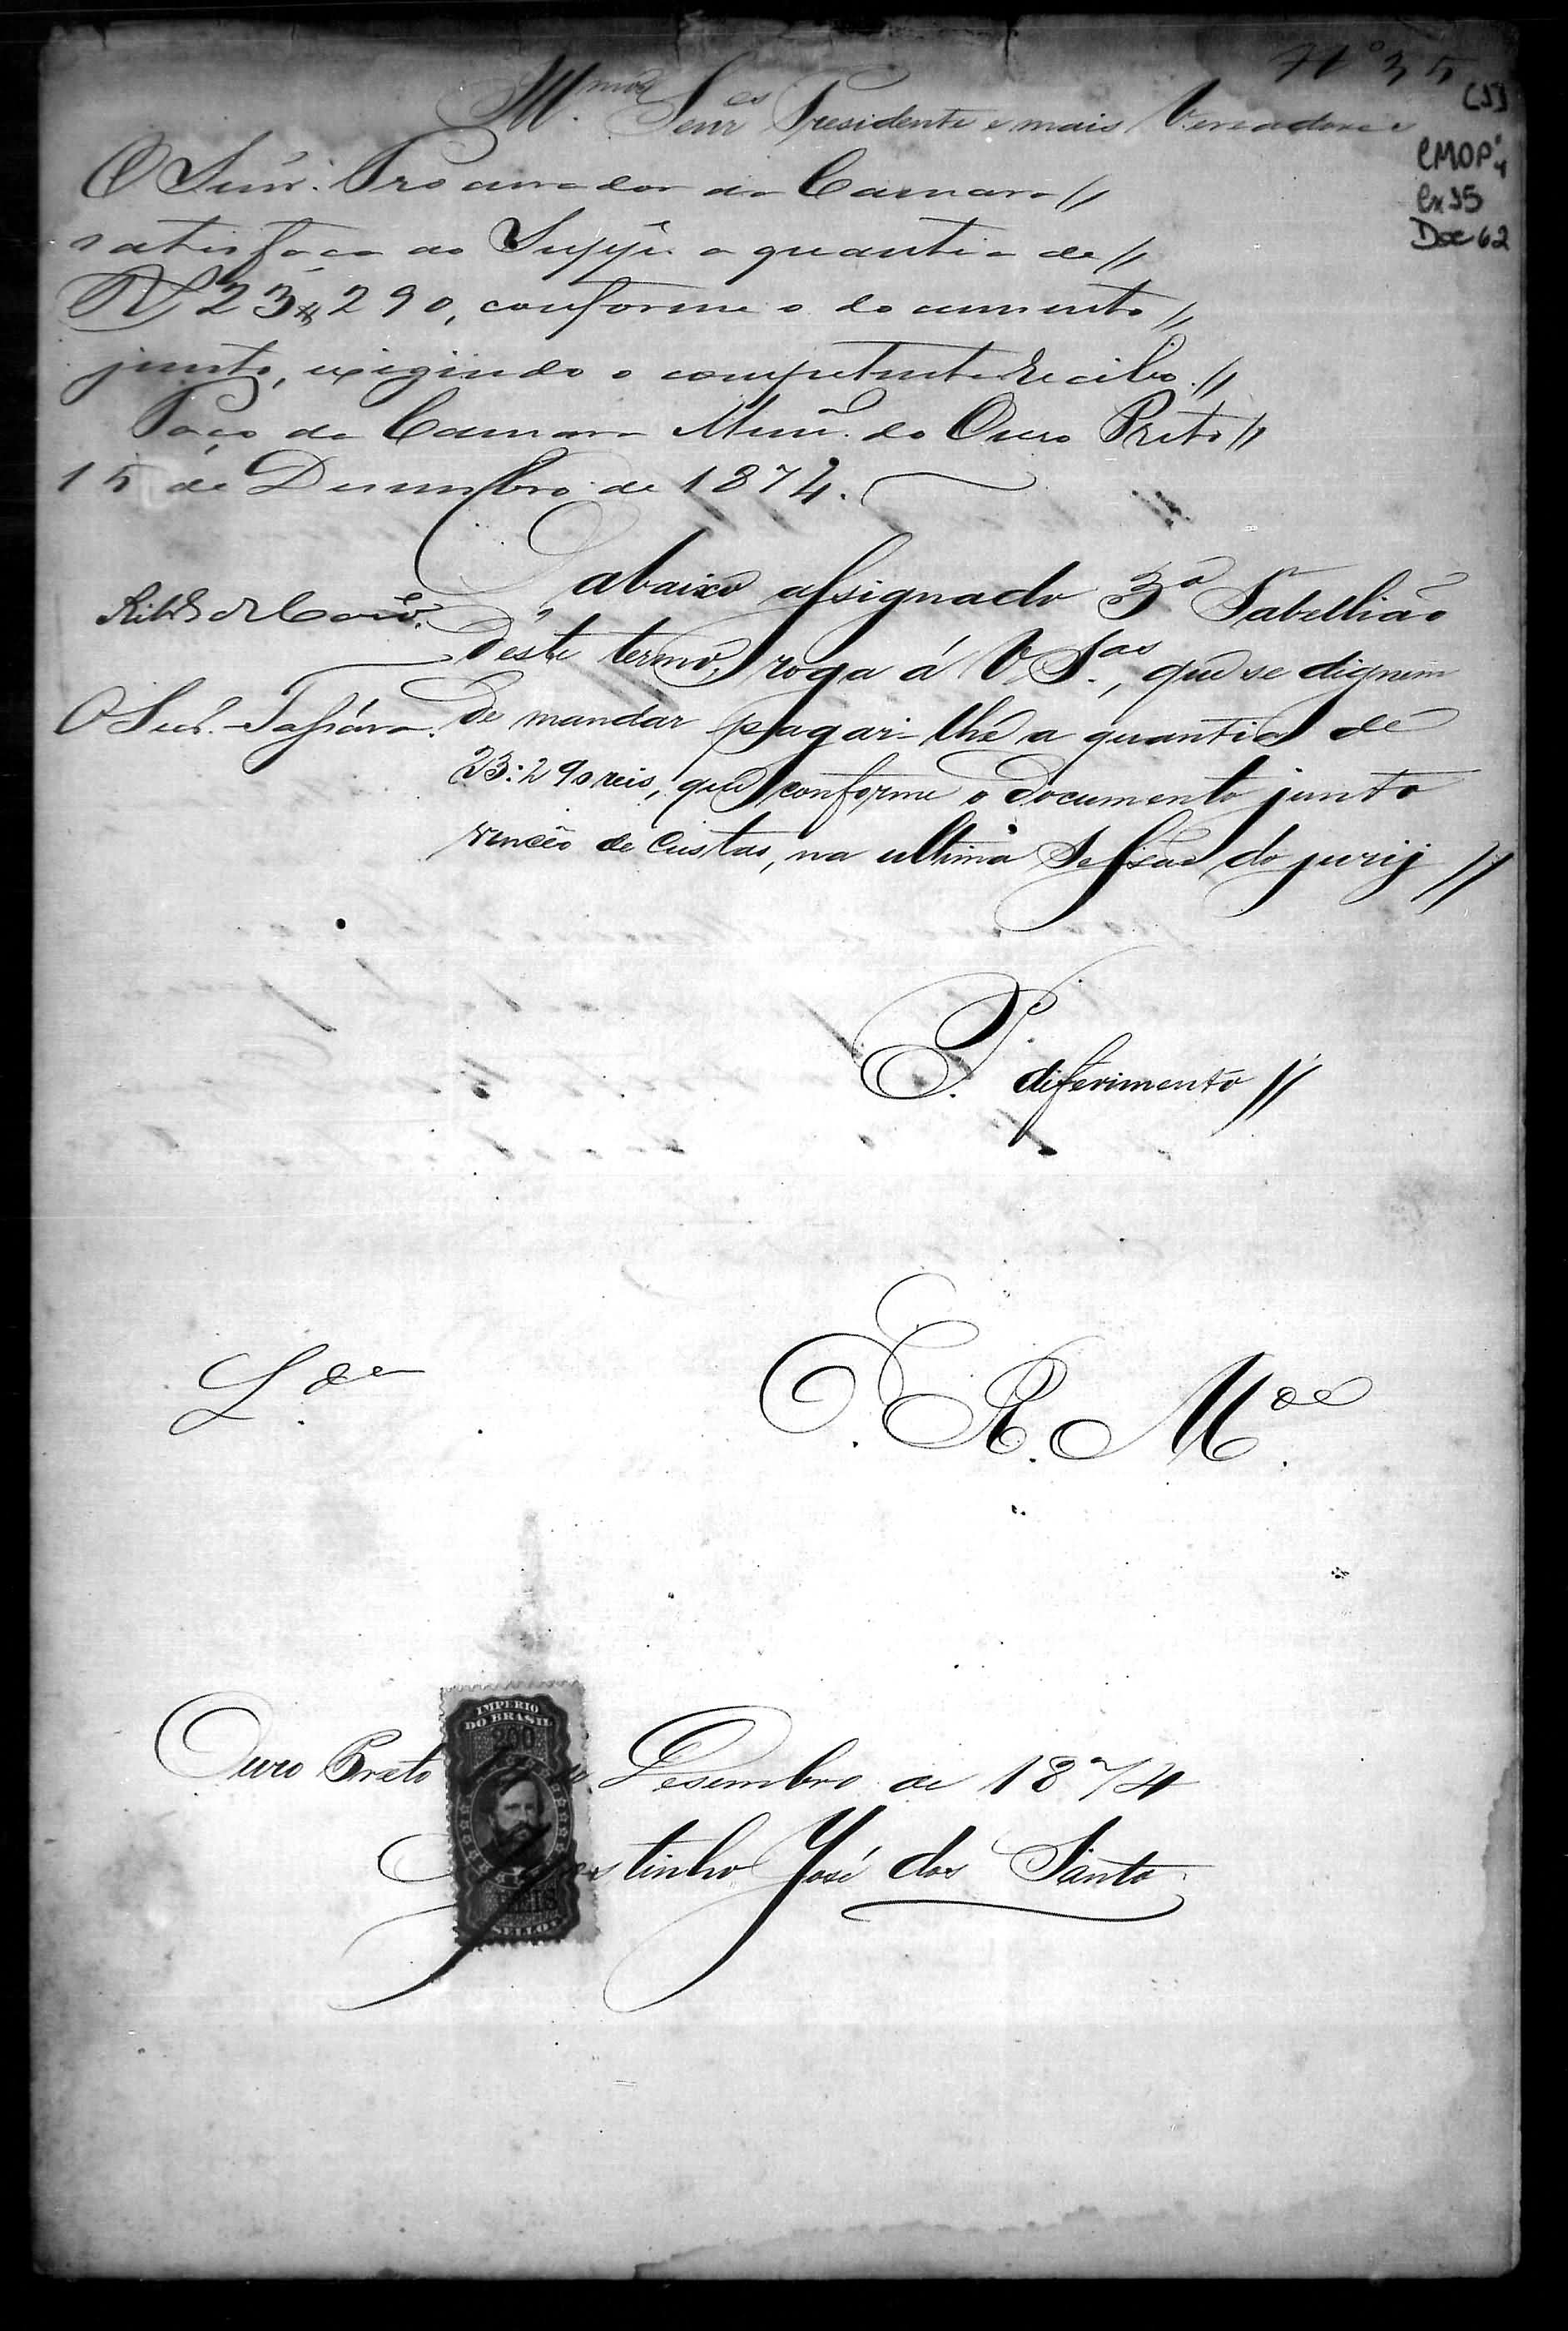 Nº 35
(1)
Ill.mos Senres Presidente e mais Vereadores
CMOP
Cx 15
Doc 62
O Senr. Procurador da Camara //
satisfaça ao Suppe. a quantia de //
Rs 23$290, conforme o documento //
junto, exigindo o competente recibo. //
Paço da Camara Mun. do Ouro Preto //
15 de Desembro de 1874.
O abaixo assignado 3º Tabellião
deste termo, roga á V. S.as, que se dignem
de mandar pagar-lhe a quantia de
23:290 reis, que conforme o documento junto
venceo de custas, na ultima Sessão do jury //
O Secr.
P. diferimento //
E. R. M.ce
L.da
IMPERIO
DO BRASIL
200
REIS
SELLO
Ouro Preto Desembro de 1874
Agostinho José dos Santos